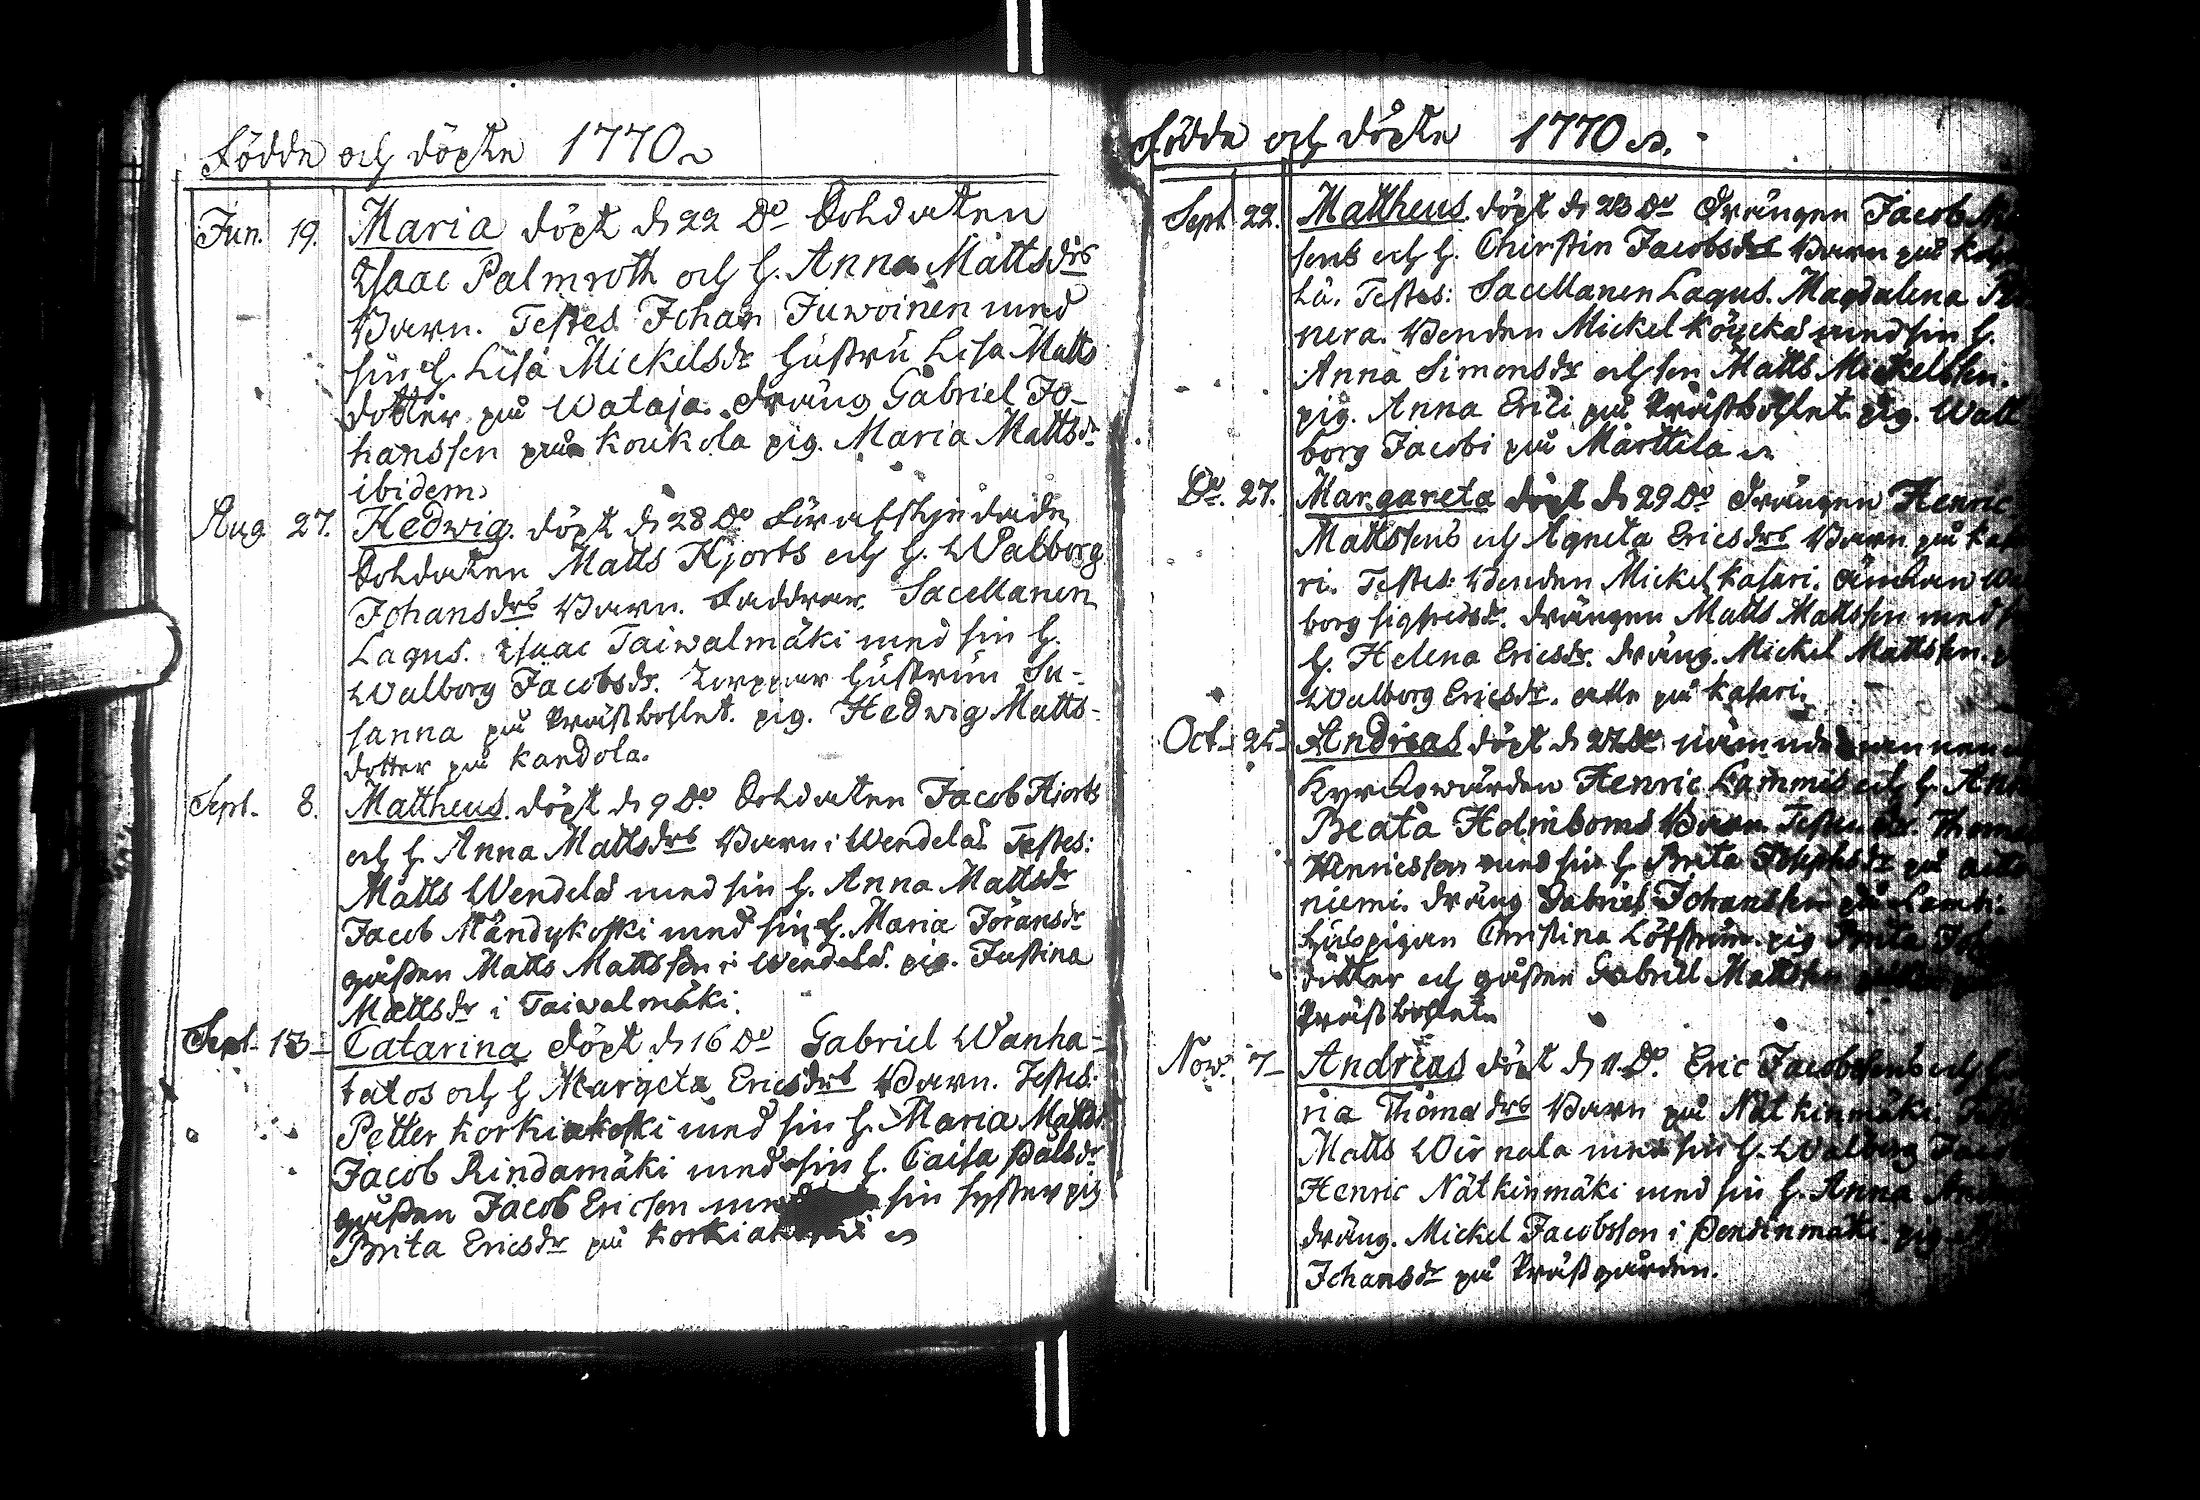 Födde och döpte 1770
Jun. 19. Maria döpt d. 22 Do Soldaten
Isaac Palmroth och h. Anna Mattsdrs
Barn. Testes Johan Juwoinen med
sin h. Lisa Mickelsdr hustru Lisa Matts
dotter på Wataja. dräng Gabriel Jo-
hansson på Koukola pig. Maria Mattsdr
ibidem
Aug. 27. Hedwig. döpt d. 28 Do Förafskjedade
Soldaten Matts Hjorts och h. Walborg
Johansdrs Barn. Faddrar. Sacellanen
Lagus. Isaac Taiwalmäki med sin h.
Walborg Jacobsdr. Torpar hustrun Su-
sanna på Prästbohlet. pig. Hedwig Matts-
dotter på Kandola.
Sept. 8. Mattheus. döpt d. 9 Do Soldaten Jacob Hjorts
och h. Anna Mattsdrs Barn i Wendelä Testes:
Matts Wendelä med sin h. Anna Mattsdr
Jacob Mändykoski med sin h. Maria Jöransdr
gåssen Matts Mattsson i Wendelä. pig. Justina
Mattsdr i Taiwalmäki.
Sept. 13 Catarina döpt d. 16 Do Gabriel Wanha-
talos och h Margeta Ericsdrs Barn. Testes:
Petter Korkiakoski med sin h. Maria Mattsdr
Jacob Rindamäki med sin h. Caisa Pålsdr
gåssen Jacob Ericson med sin syster pig
Brita Ericsdr på Korkiakoski
Födde och döpte 1770
Sept. 22. Mattheus. döpt d. 23 Do Drängen Jacob
sons och h. Chirstin Jacobsdrs Barn på
Lä. Testes: Sacellanen Lagus. Magdalena
nera. Bonden Mickel Köyckä med sin h.
Anna Simonsdr och son Matts Mickelsson.
pig. Anna Erici på Prästbohlet. pig. Wall
borg Jacobi på Märttila
Do. 27. Margareta döpt d. 29 Do Drängen Henric
Mattssons och Agneta Ericsdrs Barn på
ri. Testes: Bonden Mickel Kasari. Änkan
borg Sigfredsdr. drängen Matts Mattsson med
h. Helena Ericsdr. dräng. Mickel Mattsson.
Walborg Ericsdr. alle på Kasari.
Oct. Andreas döpt d. Do nämndemannen
Kyrkowärden Henric Lammis och h.
Beata Holmboms Barn Testes
Henricsson med sin h. Brita Josephsdr på
niemi. dräng Gabriel Johansson på
huspigan Christina Löfström. pig Brita
dotter och gåssen Gabriel Mattsson
Prästbohlet
Nov. 7 Andreas döpt d. 11. Do. Eric Jacobssons och
ria Thomædrs Barn på Nätkinmäki.
Matts Wirnala med sin h. Walborg
Henric Nätkinmäki med sin h. Anna
dräng. Mickel Jacobsson i Pendinmäki. pig
Johansdr på Prästgården.